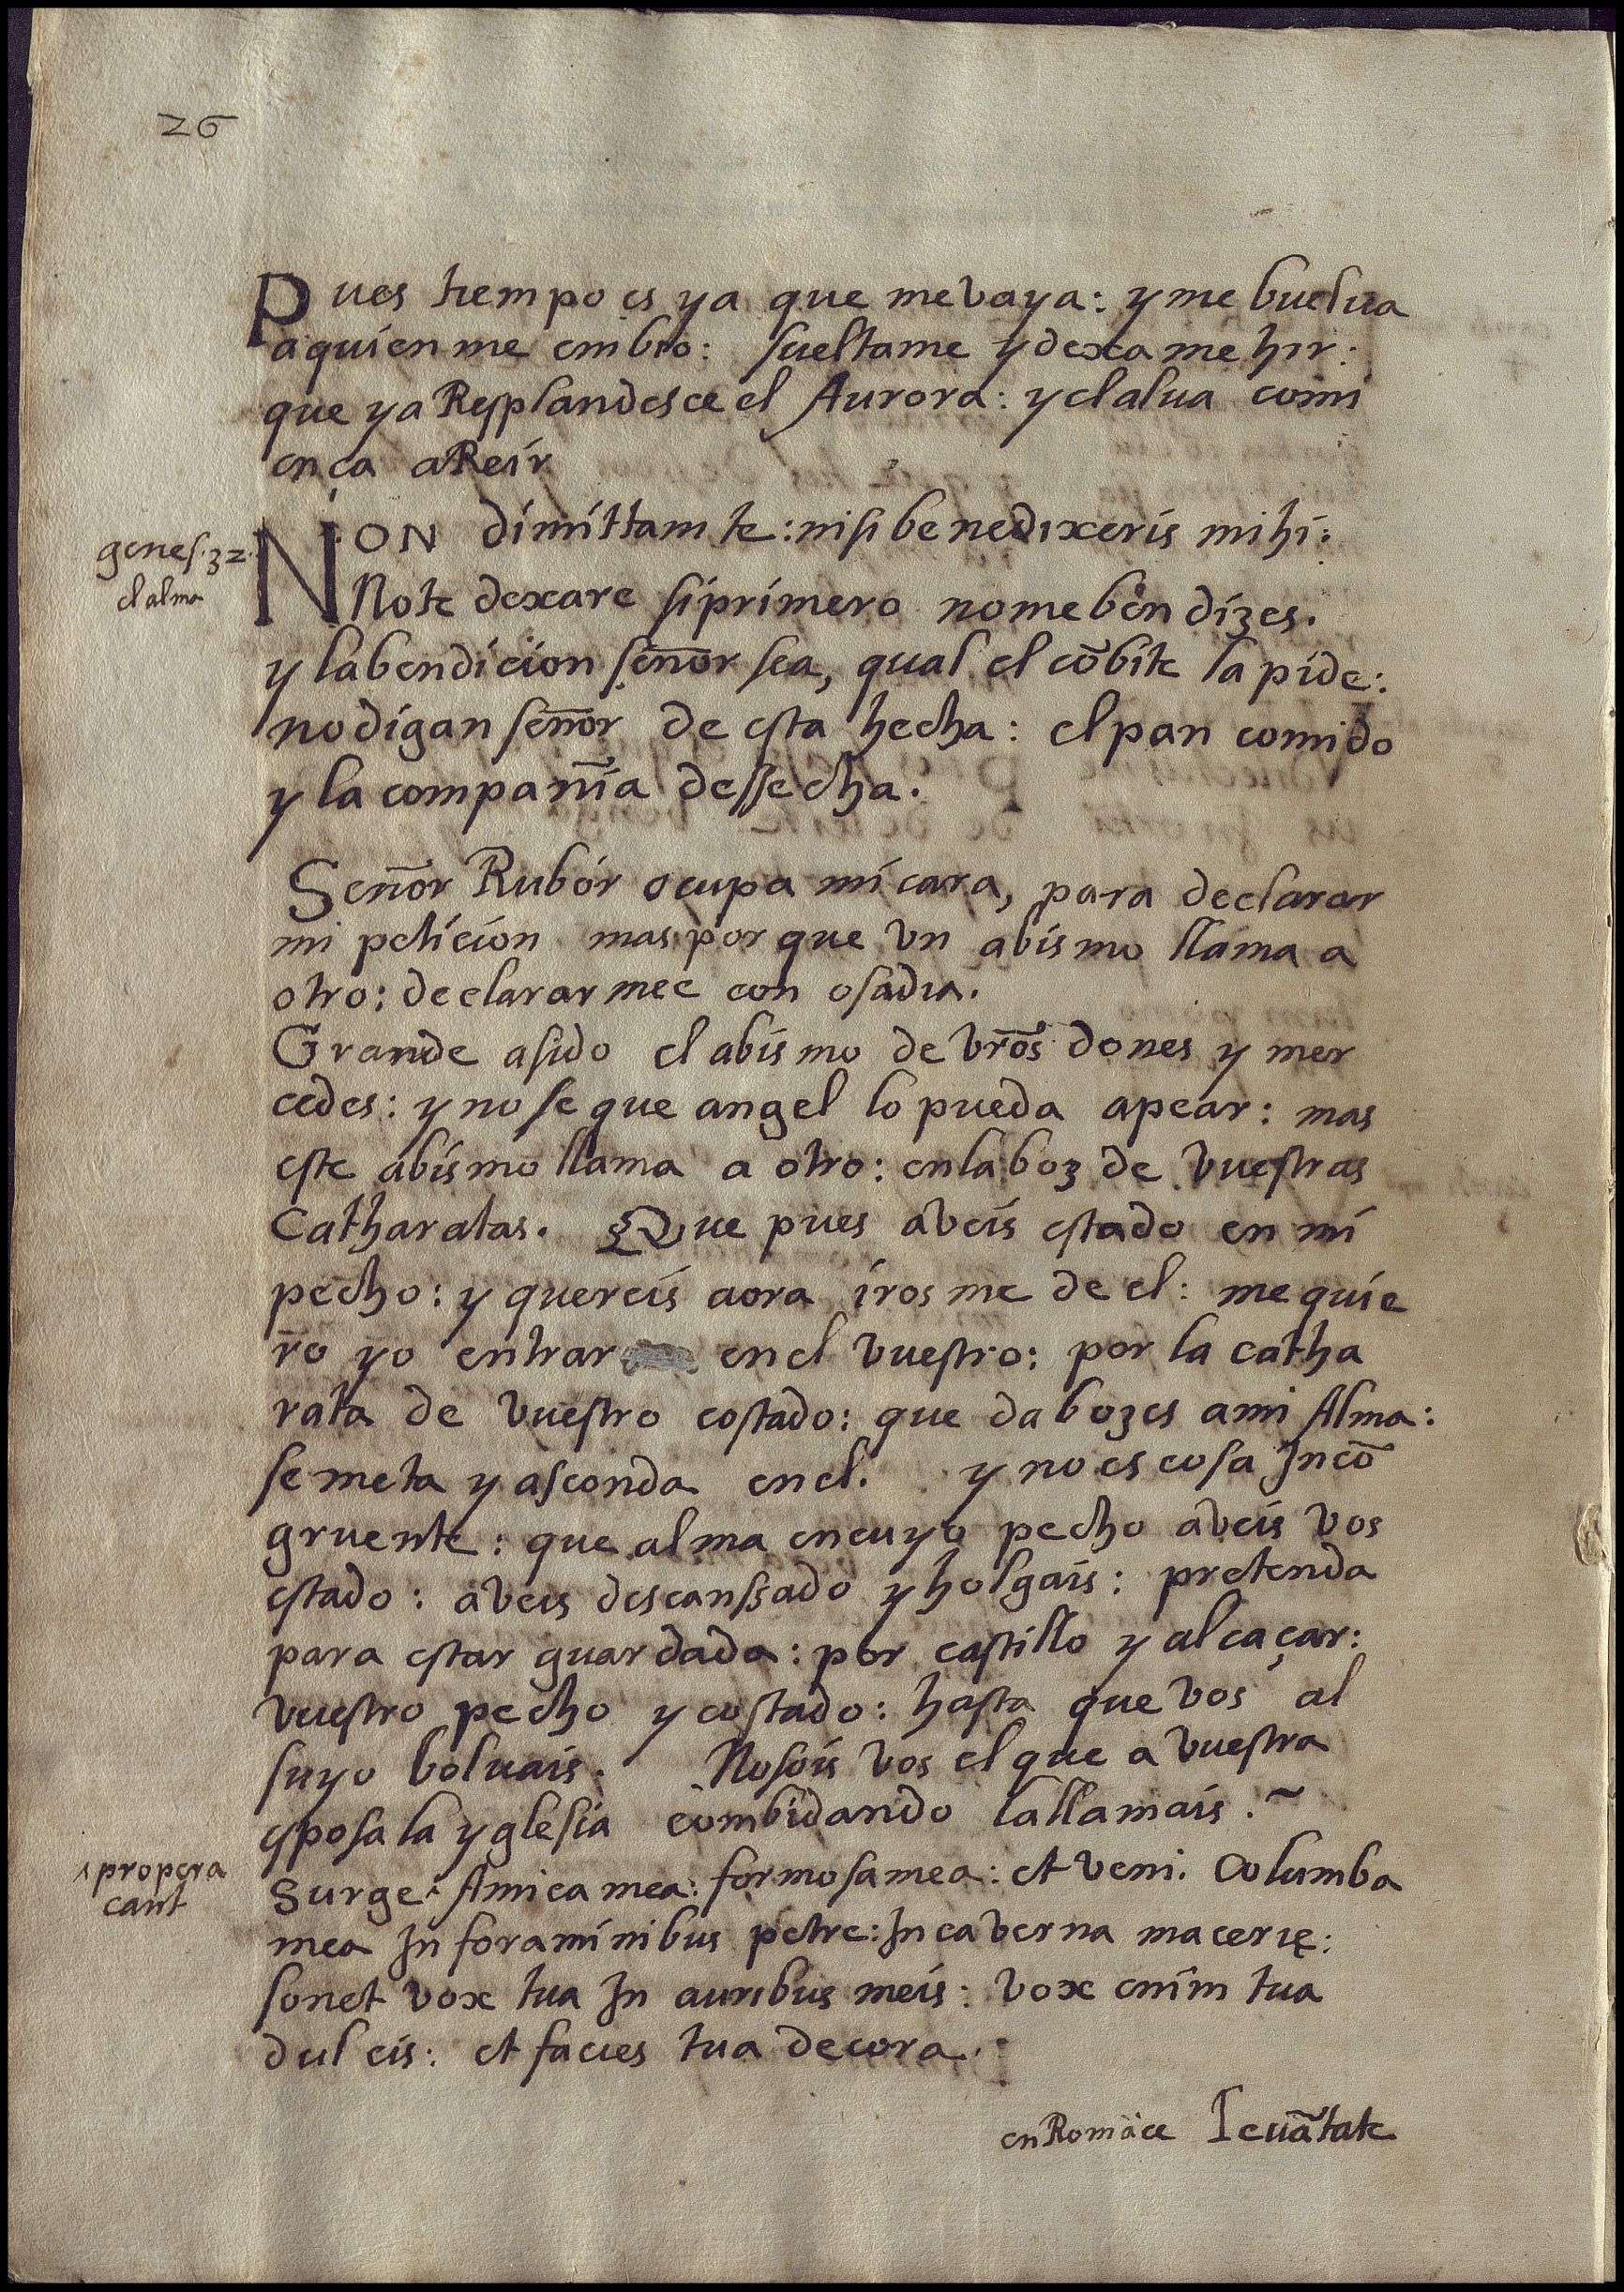 26
Pues tiempo es ya que me vaya: y me buelua
a quien me embio: sueltame y dexame hir:
que ya Resplandesce el Aurora: y el alua comi
ença a Reir
genes. 32.
el alma
NON dimittam te: nisi benedixeris mihi:
No te dexare si primero no me bendizes.
y la bendicion señor sea, qual el cõbite la pide:
no digan señor de esta hecha: el pan comido
y la compañia dessecha.
Señor Rubór ocupa mi cara, para declarar
mi peticion mas por que vn abismo llama a
otro: declararmee con osadia.
Grande a sido el abismo de vr̃os dones y mer
cedes: y no se que angel lo pueda apear: mas
este abismo llama a otro: en la boz de vuestras
Catharatas. Que pues aveis estado en mi
pecho: y quereis aora iros me de el: me quie
ro yo entrar en el vuestro: por la catha
rata de vuestro costado: que da bozes a mi Alma:
se meta y asconda en el. y no es cosa Incõ
gruente: que alma en cuyo pecho aveis vos
estado: aveis descanssado y holgais: pretenda
para estar guardada: por castillo y alcaçar:
vuestro pecho y costado: hasta que vos al
suyo boluais. No sois vos el que a vuestra
esposa la yglesia combidando la llamais.~
^propera
cant
Surge^ Amica mea: formosa mea: et veni. Columba
mea In foraminibus petre: In caverna macerię:
sonet vox tua In auribus meis: vox enim tua
dulcis: et facies tua decora.
en Romãce Leuãtate